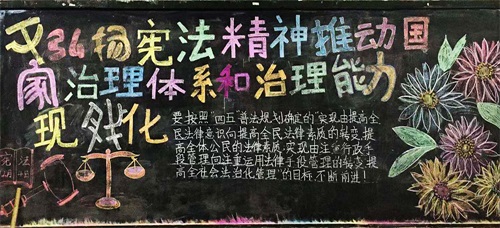 弘扬宪法精神推动国
家治理体系和治理能力
现代化
要按照"四五"普法规划确定的"实现由提高全
民法律意识向提高全民法律素质的转变,提
高全体公民的法律素质,实现由注重行政手
段管理向注重运用法律手段管理的转变,提
高全社会法治化管理"的目标,不断前进!
宪法